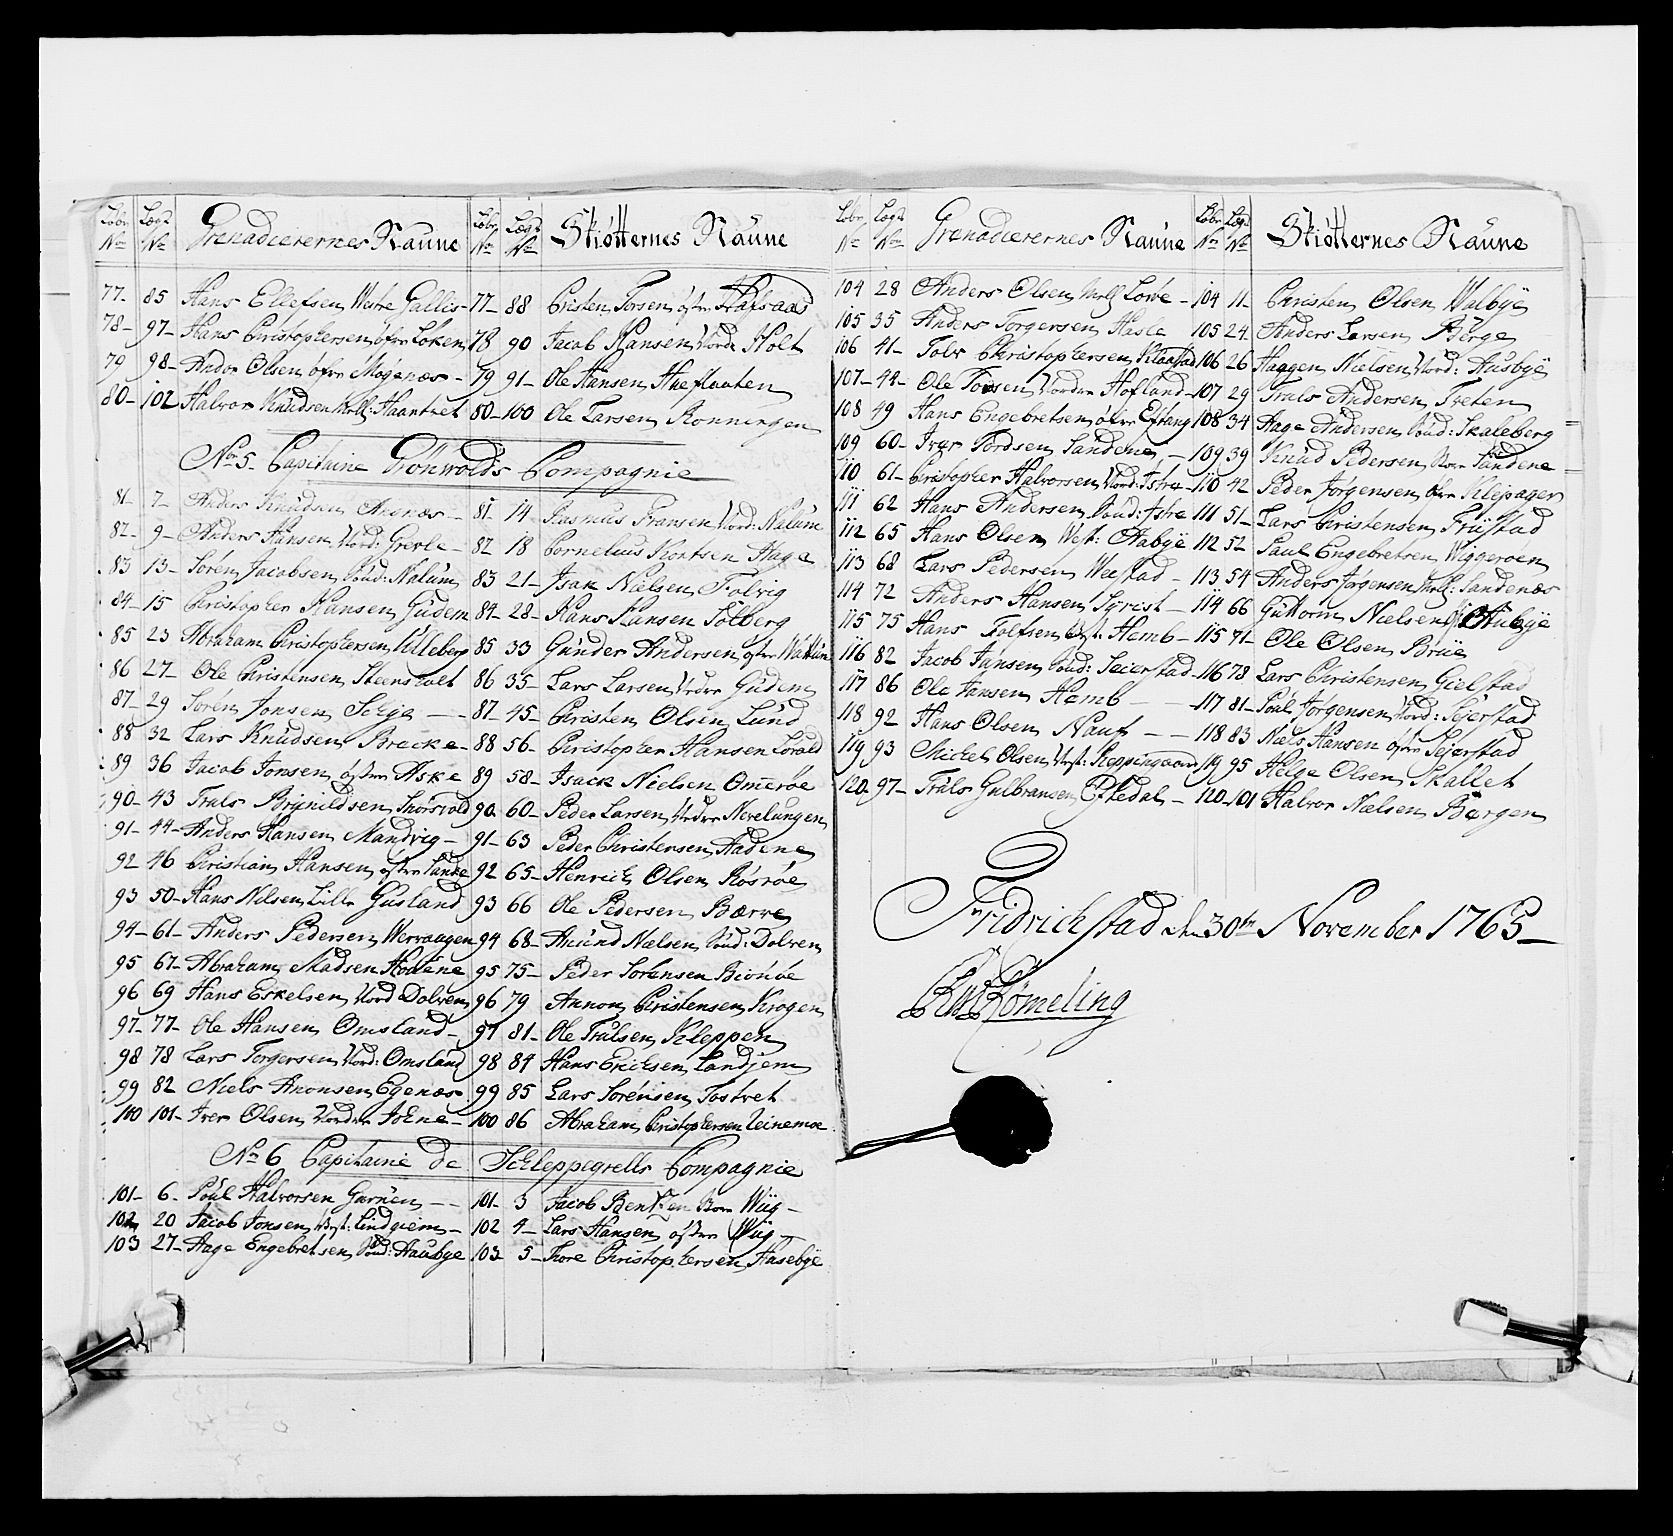 Løbe No | Lægs No | Grenadeerernes Naune | Løbe No | Lægs No | Skiøtternes Naune
77- 85 Hans Ellefsen Westre Gallis- 77- 88 Cristen Torsen øfre
78- 97- Hans Christophersen øfre Løken 78 90 Jacob Hansen Nordr Holt
79 98- Andor Olsen øfre Mogenæs- 79 91- Ole Hansen
80- 102 Halvor Knudsen 80- 100 Ole Larsen Ronningen
No 5. Capitaine Grönwolds Compagnie
81- 7- Anders Knudsen Aronæs- 81- 14- Rasmus Fransen Nord: Nalum
82- 9- Anders Hansen Nord: Grevle- 82 18 Cornelius Hage
83 13- Søren Jacobsen Sud: Nalum 83 21- Isak Nielsen Folvig
84- 15 Christopher Hansen Gudem 84- 28- Hans Hansen Solberg
85 23 Abraham Christophersen Ulleberg 85 33 Gunder Andersen øfre
86 27- Ole Christensen Steensholt 86 35- Lars Larsen Nedre Gudem
87- 29 Søren Jonsen 87- 45- Christen Olsen Lund
88 32 Lars Knudsen Brecke- 88 56- Christopher Hansen
89 36 Jacob Jonsen øfre Aske 89 58- Isack Nielsen Omerøe
90- 43 Truls Brynildsen 90- 60- Peder Larsen Nedre Nevelungen
91- 44- Anders Hansen Mandvig- 91- 63 Peder Christensen Aadene
92 46 Christian Hansen 92 65- Henrich Olsen Rosrøe
93 50- Hans Nilsen Lille Gusland 93 66 Ole Pedersen Børre
94- 61- Anders Pedersen Wervaagen 94 68- Amund Nielsen Sud: Dolven
95 67- Abraham Madsen 95 75- Peder Sørensen Biønøe
96 69 Hans Eskelsen Nord Dolven 96 79 Annon Christensen Krogen
97- 77- Ole Hansen Omsland- 97 81- Ole Trulsen Kleppen
98 78 Lars Torgersen Nord: Omsland 98 84 Hans Ericksen
99 82 Niels Anonsen Egenæs 99 85 Lars Sørensen
100 101- Iver Olsen Nordre 100 86 Abraham Christophersen
No 6 Capitaine de Schleppegrells Compagnie
101- 6- Poul Halvorsen 101- 3 Jacob Wiig-
102 20 Jacob Jonsen 102 4- Lars Hansen øfre Wiig-
103 27- Aage Engebretsen Sud: Haubye 103 5- Tore Christophersen Husebye
Løbe No | Lægs No | Grenadeerernes Naune | Løbe No | Lægs No | Skiøtternes Naune
104 28 Anders Olsen - 104 11- Christen Olsen Walbye
105 35 Anders Torgersen Hasle 105 24 Anders Larsen Berge
106 41- Tolv Christophersen Klaastad 106 26 Haagen Nielsen Nord: Ausbye
107- 44- Ole Nordre Hofland- 107 29 Truls Andersen Treten
108 49 Hans Engebretsen øfre Eftang 108 34 Aage Andersen Sud: Skaleberg
109 60- Iver Tordsen Sandene- 109 39 Knud Pedersen Store Sundene
110 61- Christopher Halvorsen Nord: Istre- 110 42 Peder Jørgensen øfre Klepager
111 62 Hans Andersen Sud: Istre 111 51- Lars Christensen Frystad
112 65 Hans Olsen West: Aabye 112 52 Paul Engebretsen Wiggeroen
113 68 Lars Pedersen Weestad- 113 54 Anders Jørgensen Sandenæs
114 72 Anders Hansen Syrist- 114 66 Guttorm Nielsen Aubye
115 75 Hans Rolfsen Hemb- 115 71- Ole Olsen Brue
116 82 Jacob Jansen Sud: Seierstad- 116 78 Lars Christensen Gielstad
117 86 Ole Jansen Hemb- 117 81- Poul Jørgensen Nord: Sejerstad
118 92 Hans Olsen Nauf- 118 83 Niels Hansen øfre Sejerstad
119 93 Michel Olsen West: 119 95 Helge Olsen Skallet
120 97- Truls Gulbransen Eftedal- 120- 101 Halvor Nielsen Børgen
Fridrichstad den 30te November 1765-
Rømeling